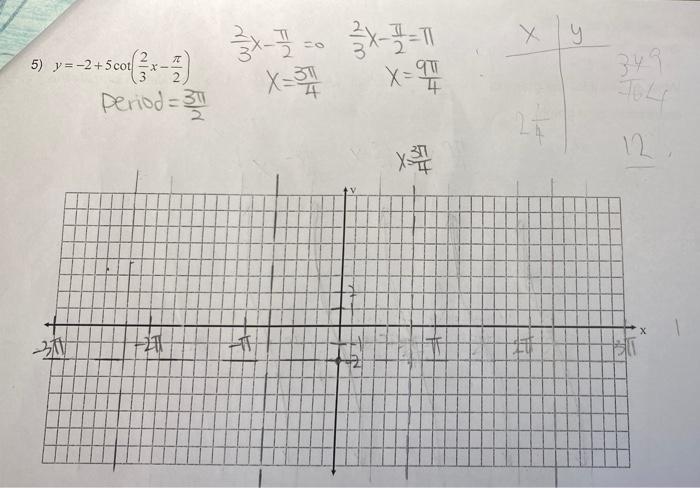 5) y = -2 + 5 cot(2/3 x - π/2)
Period = 3π/2
2/3 x - π/2 = 0
x = 3π/4
2/3 x - π/2 = π
x = 9π/4
x y
2 1/4
12
x = 3π/4
y
2
1
x
-3π -2π -π -1 π 2π 3π
-2